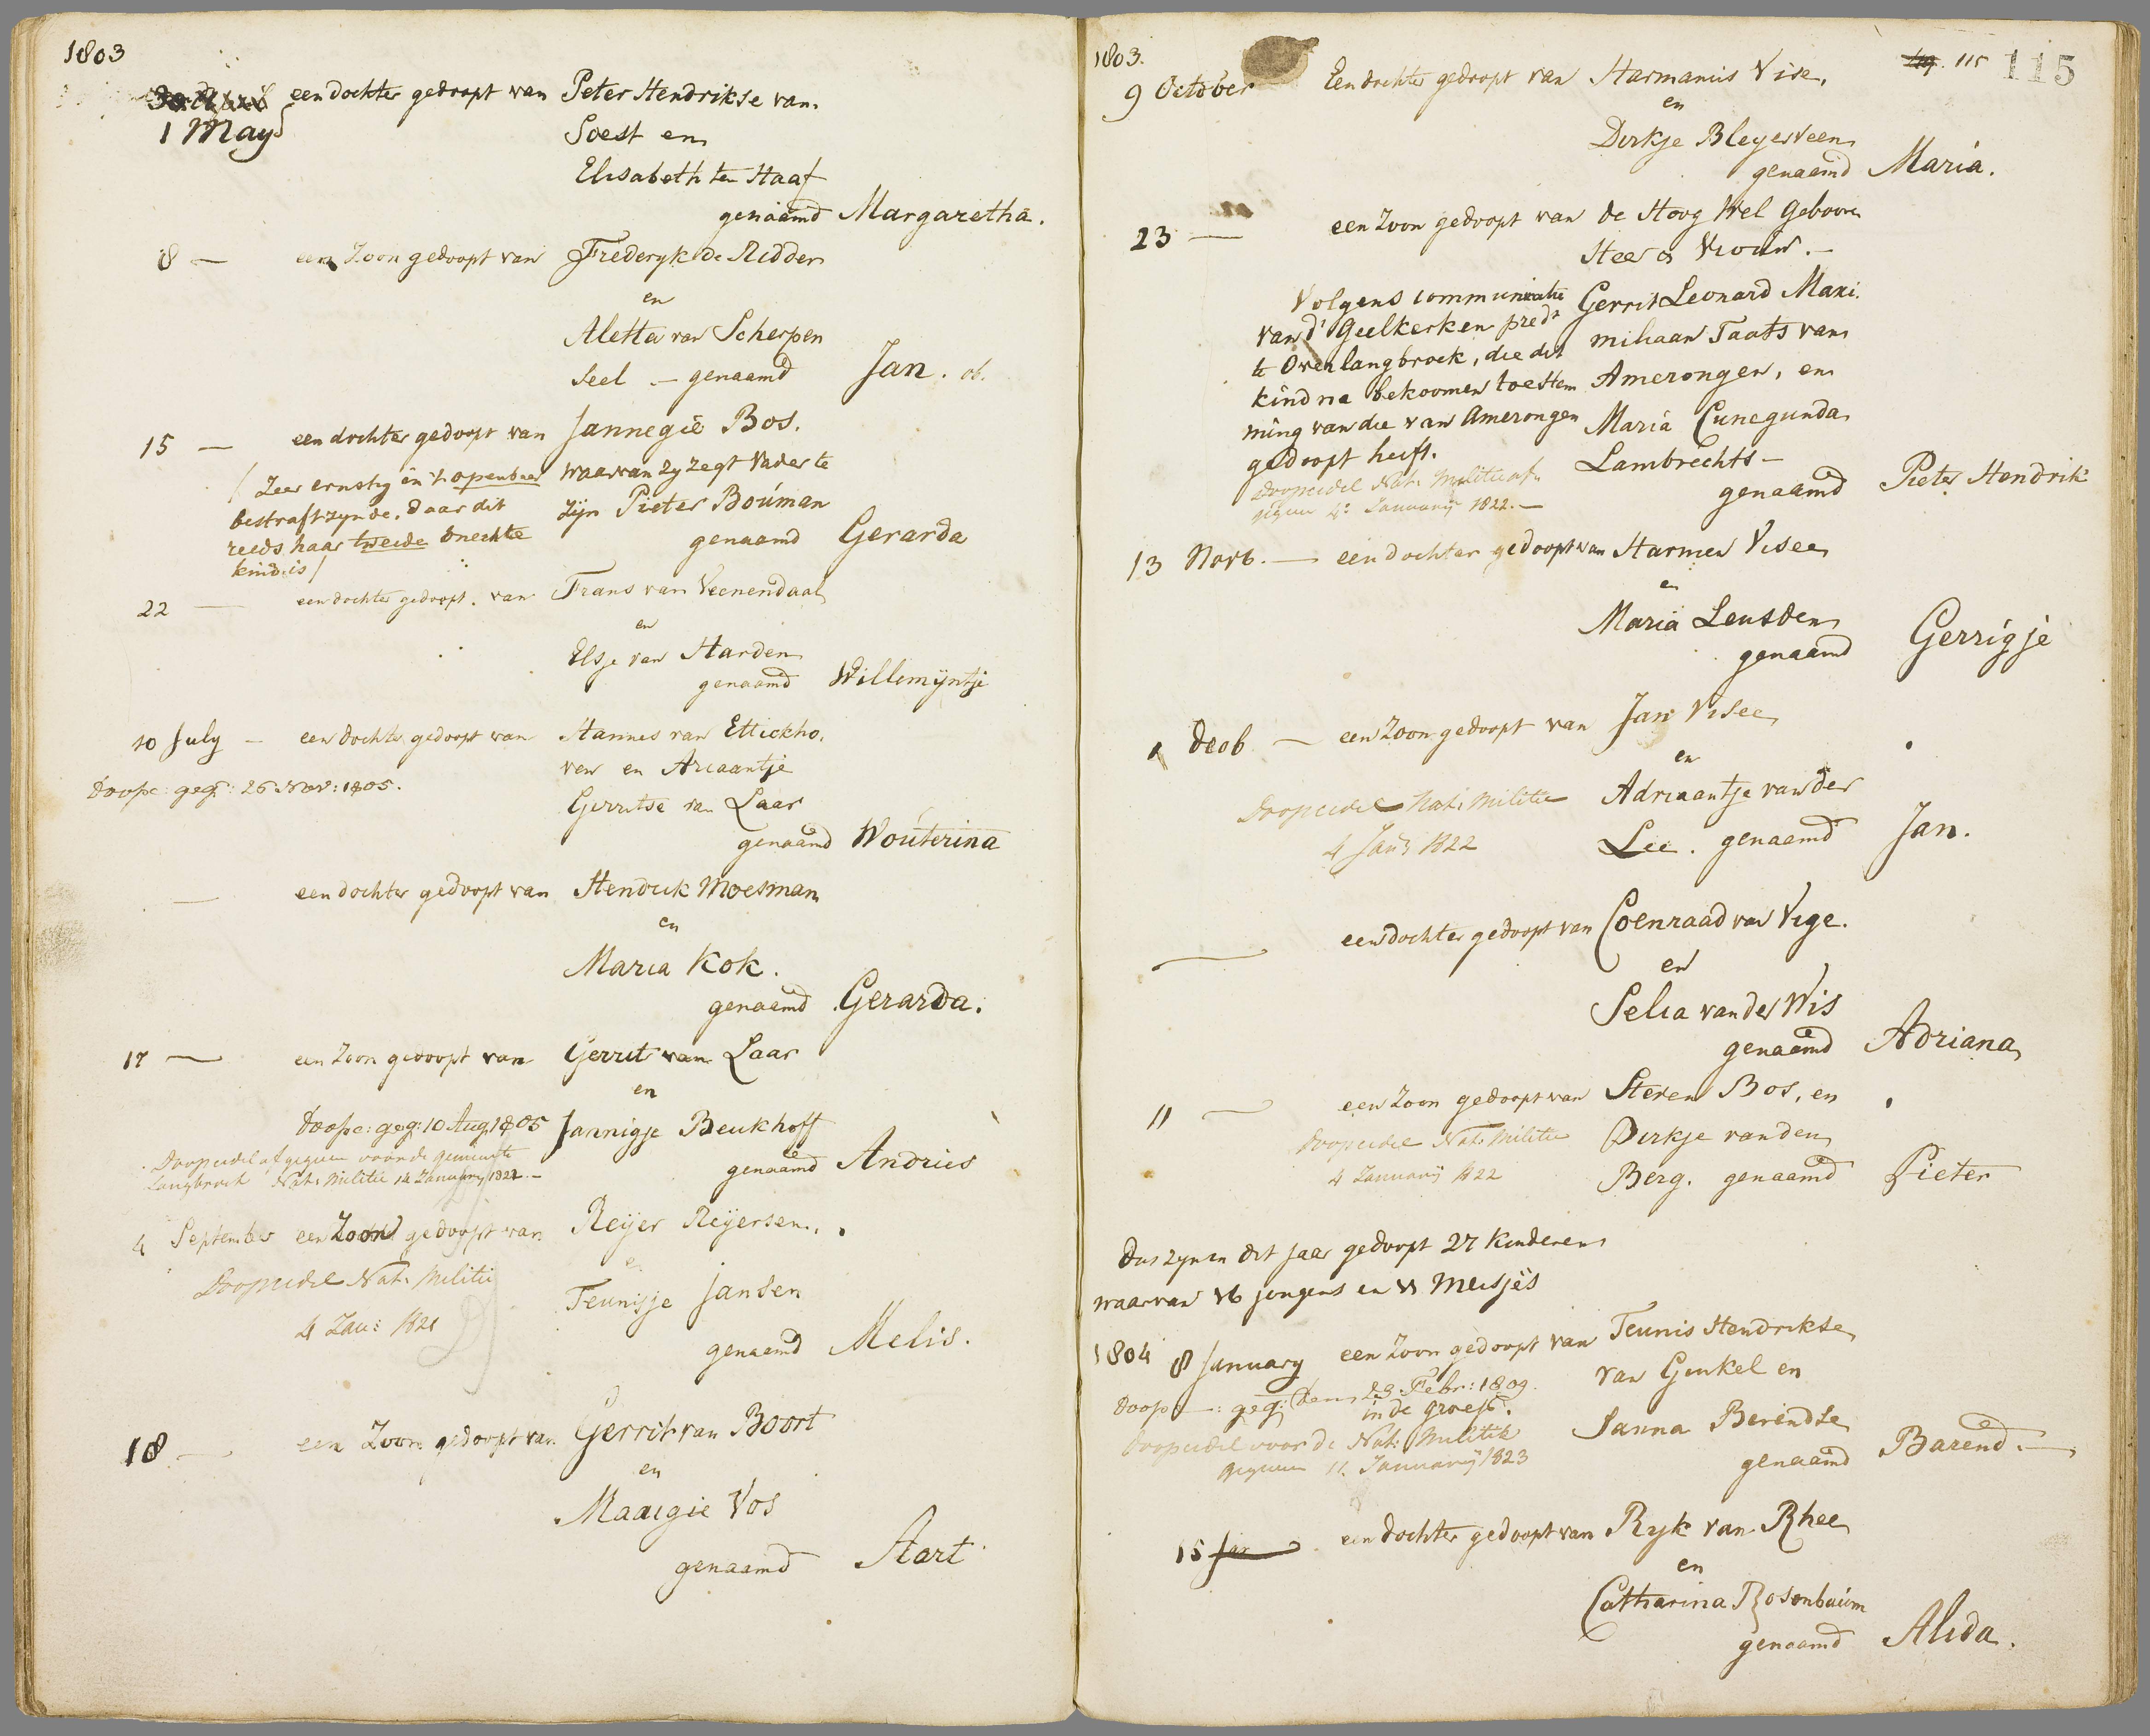 1803
1 May
een dochter gedoopt van Peter Hendrikse van
Soest en
Elisabeth ten Haaf
genaamd Margaretha.
8 — een Zoon gedoopt van Frederyk de Ridder
en
Aletta van Scherpen
seel — genaamd Jan. ob.
15 — een dochter gedoopt van Jannegie Bos.
/ Zeer ernstig in 't openbaar waarvan zy zegt Vader te
bestraft zynde, daar dit zijn Pieter Bouman
reeds haar tweede onechte genaamd Gerarda
kind is /
22 — een dochter gedoopt van Frans van Veenendaal
en
Elsje van Harden
genaamd Willemijntje
10 July — een dochter gedoopt van Hannes van Ettickho.
ven en Ariaantje
Doopc: geg: 26 Nov: 1805.
Gerritse van Laar
genaamd Wouterina
— een dochter gedoopt van Hendrik Moesman
en
Maria Kok.
genaamd Gerarda.
17 — een Zoon gedoopt van Gerrit van Laar
en
Doopc: geg: 10 Aug 1805 Jannigje Beukhoff
Doopcedel afgegeven voor de gemeente
genaamd Andries
Langbroek Nat: Militie 14 January 1822.—
4 September een Zoon gedoopt van Reijer Reijersen.
en
Doopcedel Nat: Militie
Teunisje Jansen
4 Jan: 1821
genaamd Melis.
18 — een Zoon gedoopt van Gerrit van Boort
en
Maaigie Vos
genaamd Aart
1803.
115 115
9 October Een dochter gedoopt van Harmanus Vise,
en
Dirkje Bleyesveen
genaamd Maria.
23 — een Zoon gedoopt van de Hoog Wel Geboore
Heer & Vrouw.—
Volgens communicatie Gerrit Leonard Maxi.
van d' Geelkerken predt miliaan Taats van
te Overlangbroek, die dit
kind na bekoomen toestem Amerongen, en
ming van die van Amerongen Maria Cunegunda
gedoopt heeft. Lambrechts —
Doopcedel Nat: Militie af-
genaamd Pieter Hendrik
gegeven 4: January 1822.—
13 Novb. — een dochter gedoopt van Harmen Visee
en
Maria Leusden
genaamd Gerrigje
Decb — een Zoon gedoopt van Jan Visee
en
Doopcedel Nat: Militie Adriaantje van der
4 Jan: 1822 Lee. genaamd Jan.
— een dochter gedoopt van Coenraad van Vege.
en
Selia van der Wis
genaamd Adriana
11 — een Zoon gedoopt van Steven Bos, en
Doopcedel Nat: Militie Dirkje van den
4 January 1822 Berg. genaamd Pieter
Dus zyn in dit jaar gedoopt 27 Kinderen
waarvan 16 jongens en 11 Meisjes
1804 8 January een Zoon gedoopt van Teunis Hendrikse
van Ginkel en
Doop —: geg: den 28 Febr: 1809.
in de groest.
Doopcedel voor de Nat: Militie Janna Berendse
gegeven 11. January 1823
genaamd Barend.—
15 Jan een dochter gedoopt van Ryk van Rhee
en
Catharina Rosenbaum
genaamd Alida.